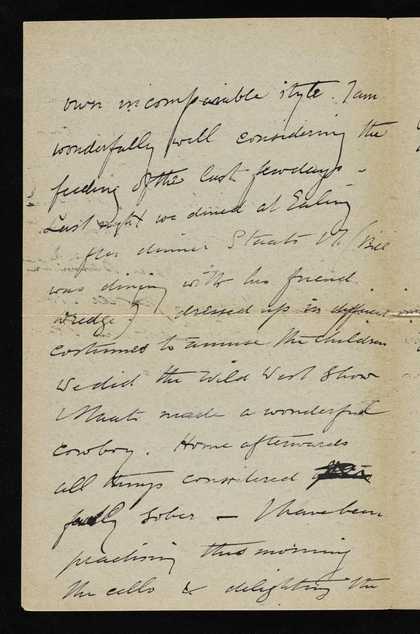 own incomparable style. I am
wonderfully well considering the
feeding of the last few days.
Last night we dined at Ealing
after dinner Staats & I (Bill
was dining with his friend
Wredge) dressed up in different
costumes to amuse the children
We did the Wild West Show
Staats made a wonderful
cowboy. Home afterwards
all things considered
fully sober — I have been
practising this morning
the cello & delighting the